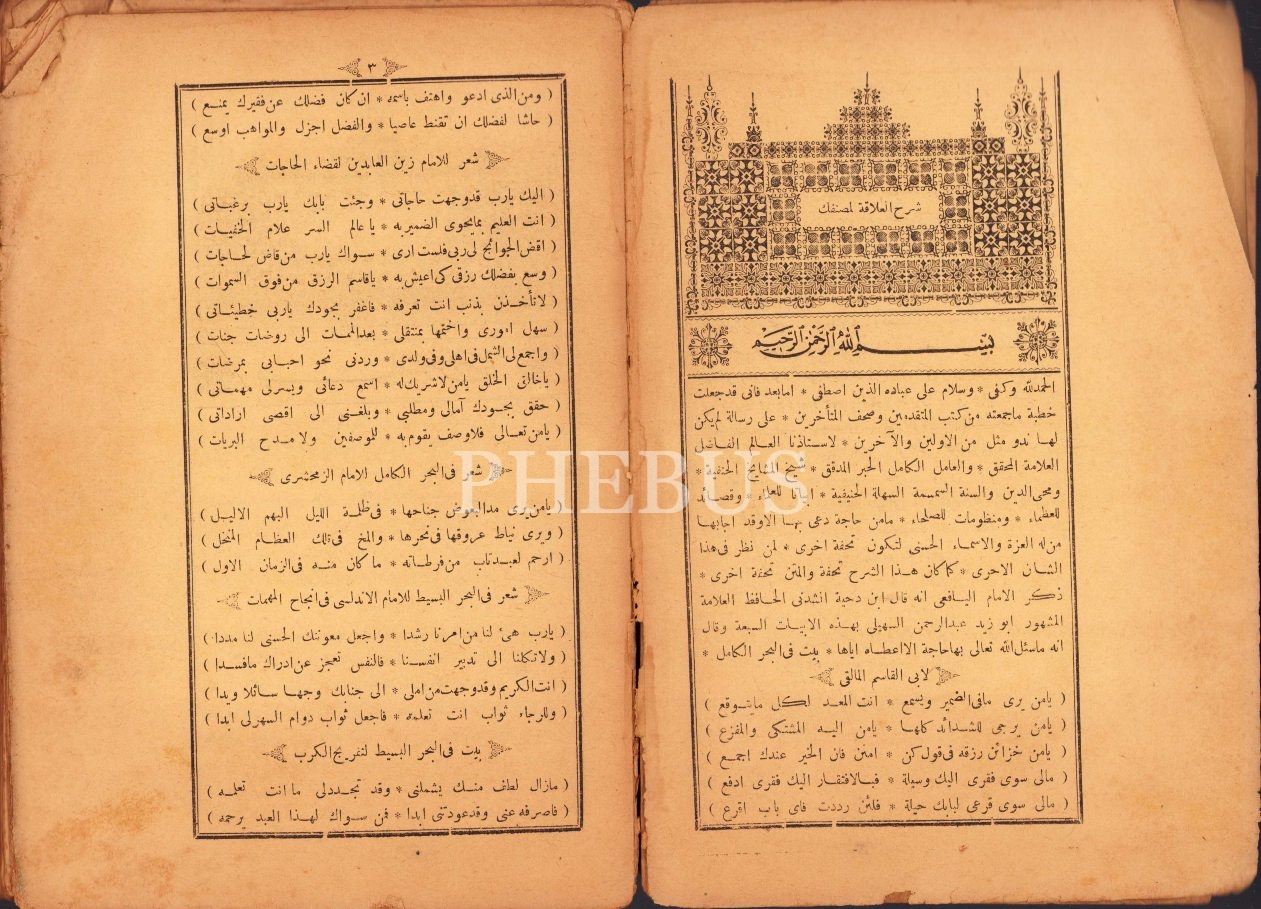 شرح العلاقة لمصنفك
بسم الله الرحمن الرحيم
الحمدلله وكفى * وسلام على عباده الذين اصطفى * امابعد فانى قدجعلت
خطبة ماجمعته من كتب المتقدمين وصحف المتأخرين * على رسالة لم يكن
لها ندو مثل من الاولين والآخرين * لاستاذنا العالم الفاضل
العلامة المحقق * والعامل الكامل الحبر المدقق * شيخ المشايخ الحنفية *
ومحى الدين والسنة السمسمة السهلة الحنيفية * ابياتا للعلماء * وقصائد
للعظماء * ومنظومات للصلحاء * مامن حاجة دعى بها الاوقد اجابها
من له العزة والاسماء الحسنى لتكون تحفة اخرى * لمن نظر فى هذا
الشان الاحرى * كما كان هذا الشرح تحفة والمتن تحفة اخرى *
ذكر الامام اليافعى انه قال ابن دحية انشدنى الحافظ العلامة
المشهور ابو زيد عبدالرحمن السهيلى بهذه الابيات السبعة وقال
انه ماسئل الله تعالى بهاحاجة الااعطاه اياها * بيت فى البحر الكامل *
لابى القاسم المالقى
( يامن يرى مافى الضمير ويسمع * انت المعد لكل مايتوقع )
( يامن يرجى للشدائد كلها * يامن اليه المشتكى والمفزع )
( يامن خزائن رزقه فى قول كن * امنن فان الخير عندك اجمع )
( مالى سوى فقرى اليك وسيلة * فبالافتقار اليك فقرى ادفع )
( مالى سوى قرعى لبابك حيلة * فلئن رددت فاى باب اقرع )
٣
( ومن الذى ادعو واهتف باسمه * ان كان فضلك عن فقيرك يمنع )
( حاشا لفضلك ان تقنط عاصيا * والفضل اجزل والمواهب اوسع )
شعر للامام زين العابدين لقضاء الحاجات
( اليك يارب قدوجهت حاجاتى * وجئت بابك يارب برغباتى )
( انت العليم بمايحوى الضميربه * ياعالم السر علام الخفيات )
( اقض الحوائج لى ربى فلست ارى * سواك يارب من قاض لحاجات )
( وسع بفضلك رزقى كى اعيش به * ياقاسم الرزق من فوق السموات )
( لاتأخذن بذنب انت تعرفه * فاغفر بجودك ياربى خطيئاتى )
( سهل امورى واختمها بمنتقلى * بعدالممات الى روضات جنات )
( واجمع لى الشمل فى اهلى وفى ولدى * وردنى نحو احبابى بمرضات )
( ياخالق الخلق يامن لاشريك له * اسمع دعائى ويسرلى مهماتى )
( حقق بجودك آمالى ومطلبى * وبلغنى الى اقصى اراداتى )
( يامن تعالى فلاوصف يقوم به * للموصفين ولامدح البريات )
شعر فى البحر الكامل للامام الزمخشرى
( يامن يرى مدالبعوض جناحها * فى ظلمة الليل البهم الاليل )
( ويرى نياط عروقها فى نحرها * والمخ فى تلك العظام النحل )
( ارحم لعبد تاب من فرطاته * ما كان منه فى الزمان الاول )
شعر فى البحر البسيط للامام الاندلسى فى انجاح المهمات
( يارب هئ لنا من امرنا رشدا * واجعل معونتك الحسنى لنا مددا )
( ولاتكلنا الى تدبير انفسنا * فالنفس تعجز عن ادراك مافسدا )
( انت الكريم وقدوجهت من املى * الى جنابك وجها سائلا ويدا )
( وللرجاء ثواب انت تعلمه * فاجعل ثواب دوام السهرلى ابدا )
بيت فى البحر البسيط لتفريج الكرب
( مازال لطف منك يشملنى * وقد تجددلى ما انت تعلمه )
( فاصرفه عنى وقدعودتنى ابدا * فمن سواك لهذا العبد يرحمه )
PHEBUS